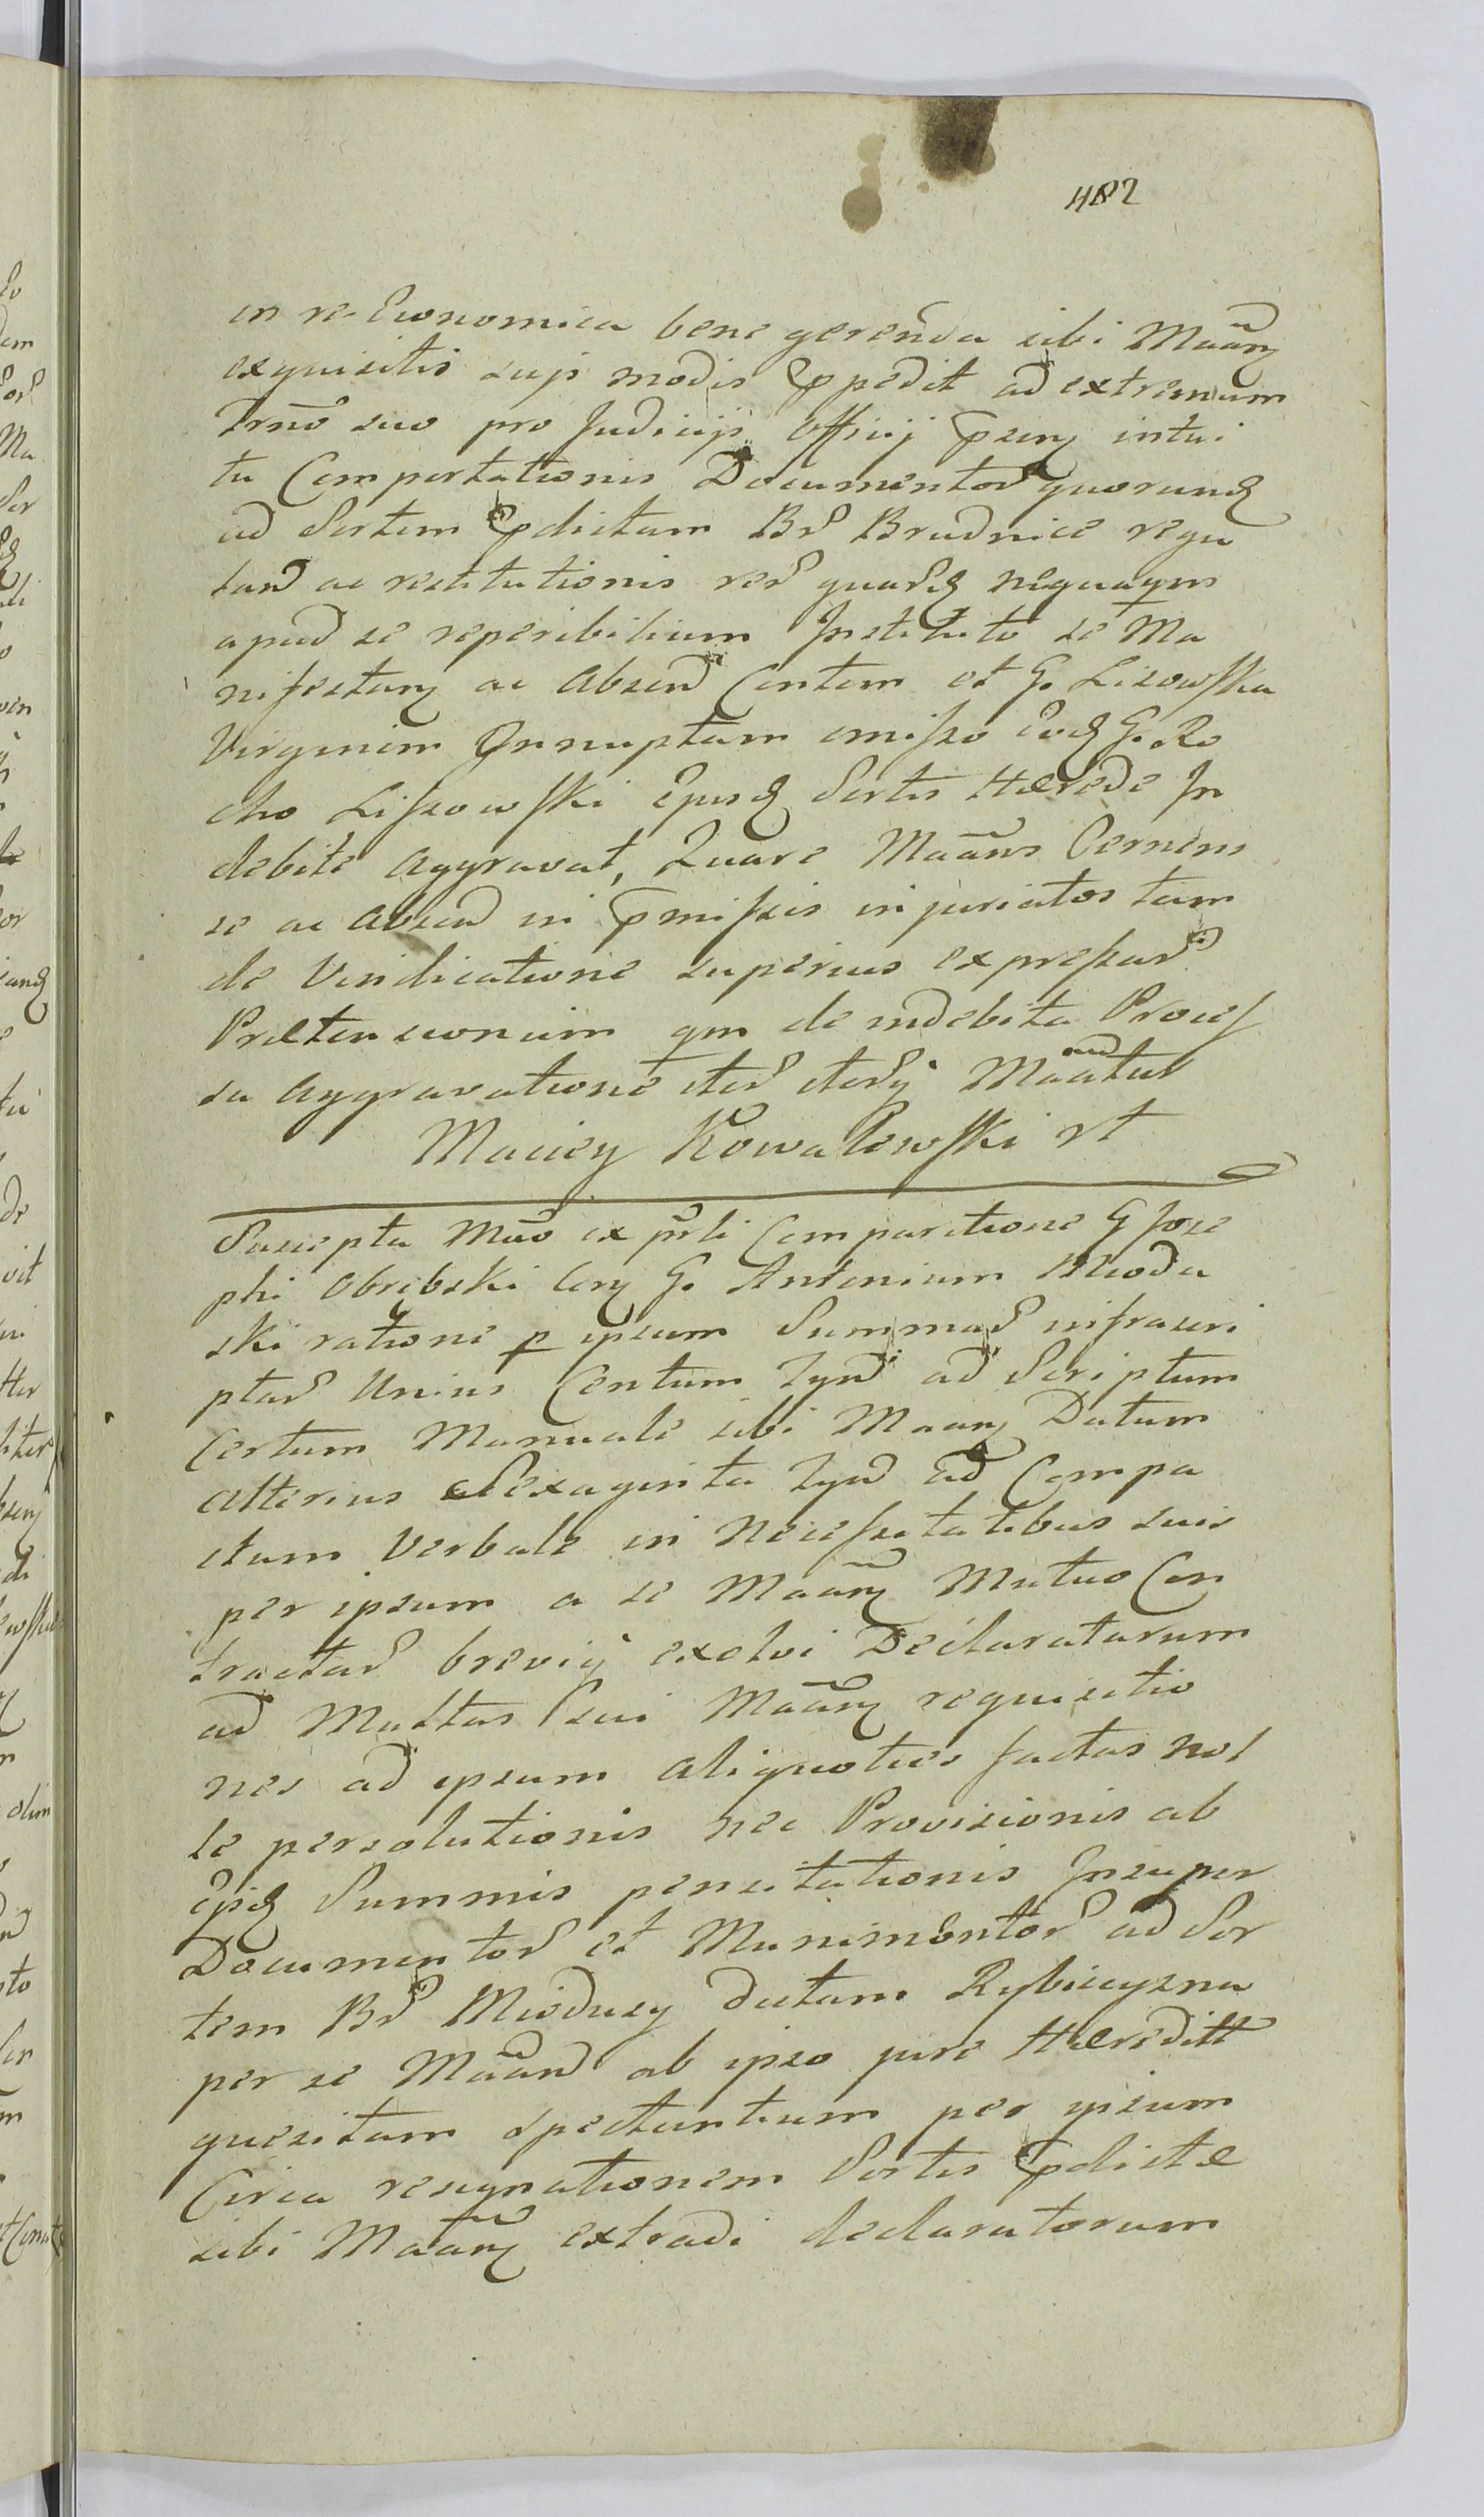 482
in re Economica bene gerenda sibi Maãnỹ
exquisitis suis modis Ppedit ad extremum
Trno suo pro Judicijs Officij Psenỹ intui
tu Comportationis Documentor quorunq
ad Sortem Pdictam Br Brudnice regu
land ac restitutionis rer quarq nequaqm
apud se reperibilium Instituto se Ma
nifestanỹ ac Absend Contem et G. Lisowska
Virginem Innuptam omisso Eodq G. Ro
cho Lissowski Ejusq Sortis Hærede In
debite Aggravat, Quare Maãns Cernens
se ac Absend in Pmissis injuriatos tam
de Vindicatione superius expressar
Prætensionum qm de indebita Proces
su Aggravatione iter iterq Maãtur
Maciey Kowalewski rt
Suscepta Mão ex pñli Comparitione G Jose
phi Obrębski Cony G. Antonium Miodu
ski ratione p ipsum Summar infrascri
ptar Unius Centum Tynf ad Scriptum
Certum Manuale sibi Maanỹ Datum
alterius Sexaginta Tynf ad Compa
ctum Verbale in Necessitatibus suis
per ipsum a se Maãnỹ Mutuo Con
tractar brevij exolvi Declaratarum
ad Multas sui Maãnỹ requisitio
nes ad ipsum aliquoties factas nol
le persolutionis nec Provisionis ab
Ejsdq Summis pensitationis Insuper
Documentor et Munimentor ad Sor
tem Br Mioduszy dictam Rybiczyzna
per se Maãnd ab ipso jure Hæreditt
quesitam spectantium per ipsum
Circa resignationem Sortis Pdictæ
sibi Maãnỹ extradi declaratorum